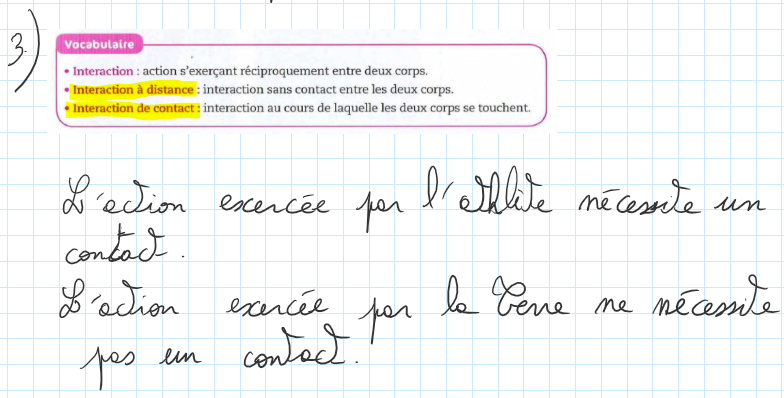 3.)
Vocabulaire
• Interaction : action s'exerçant réciproquement entre deux corps.
• Interaction à distance : interaction sans contact entre les deux corps.
• Interaction de contact : interaction au cours de laquelle les deux corps se touchent.
L'action exercée par l'athlète nécessite un
contact.
L'action exercée par la Terre ne nécessite
pas un contact.